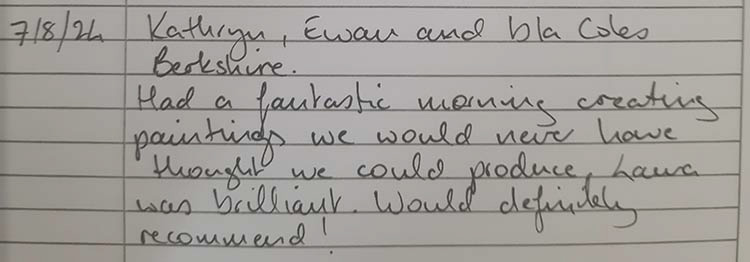 7/8/24 Kathryn, Ewan and Isla Coles
Berkshire.
Had a fantastic morning creating
paintings we would never have
thought we could produce, Laura
was brilliant. Would definitely
recommend!